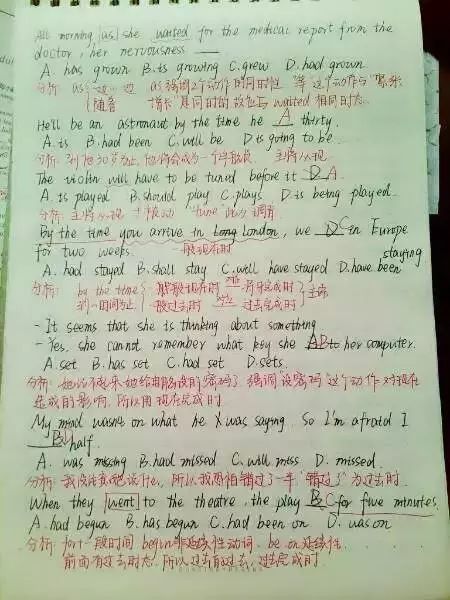 All morning as she waited for the medical report from the
doctor, her nervousness ___
A. has grown B. is growing C. grew D. had grown
分析: as: 一边一边 as强调2个动作的同时性 "等"这个动作与"紧张
随着 增长"是同时的故也与 waited 相同时态.
He'll be an astronaut by the time he A thirty.
A. is B. had been C. will be D. is going to be.
分析: 到他30岁为止, 他将会成为一个宇航员. 主将从现
The violin will have to be tuned before it D A.
A. is played B. should play C. plays D. is being played.
分析: 主将从现 + 被动 tune 此处调音.
By the time you arrive in Long London, we D C in Europe
for two weeks. 一般现在时
A. had stayed B. shall stay C. will have stayed D. have been staying
分析: by the time 一般现在时 将来完成时 主句
到一时间为止 一般过去时 过去完成时
- It seems that she is thinking about something
- Yes, she cannot remember what key she A B to her computer.
A. set B. has set C. had set D. sets.
分析: 她记不起来她给电脑设的密码了. 强调"设密码"这个动作对现在
造成的影响, 所以用现在完成时.
My mind wasn't on what he X was saying. So I'm afraid I
B half.
A. was missing B. had missed C. will miss D. missed.
分析: 所以我恐怕错过了一半 "错过了"为过去时.
When they went to the theatre, the play B C for five minutes.
A. had begun B. has begun C. had been on D. was on
分析: for+一段时间 begun 非延续性动词. be on 延续性.
前面有过去时态. 所以过去的过去, 过去完成时.